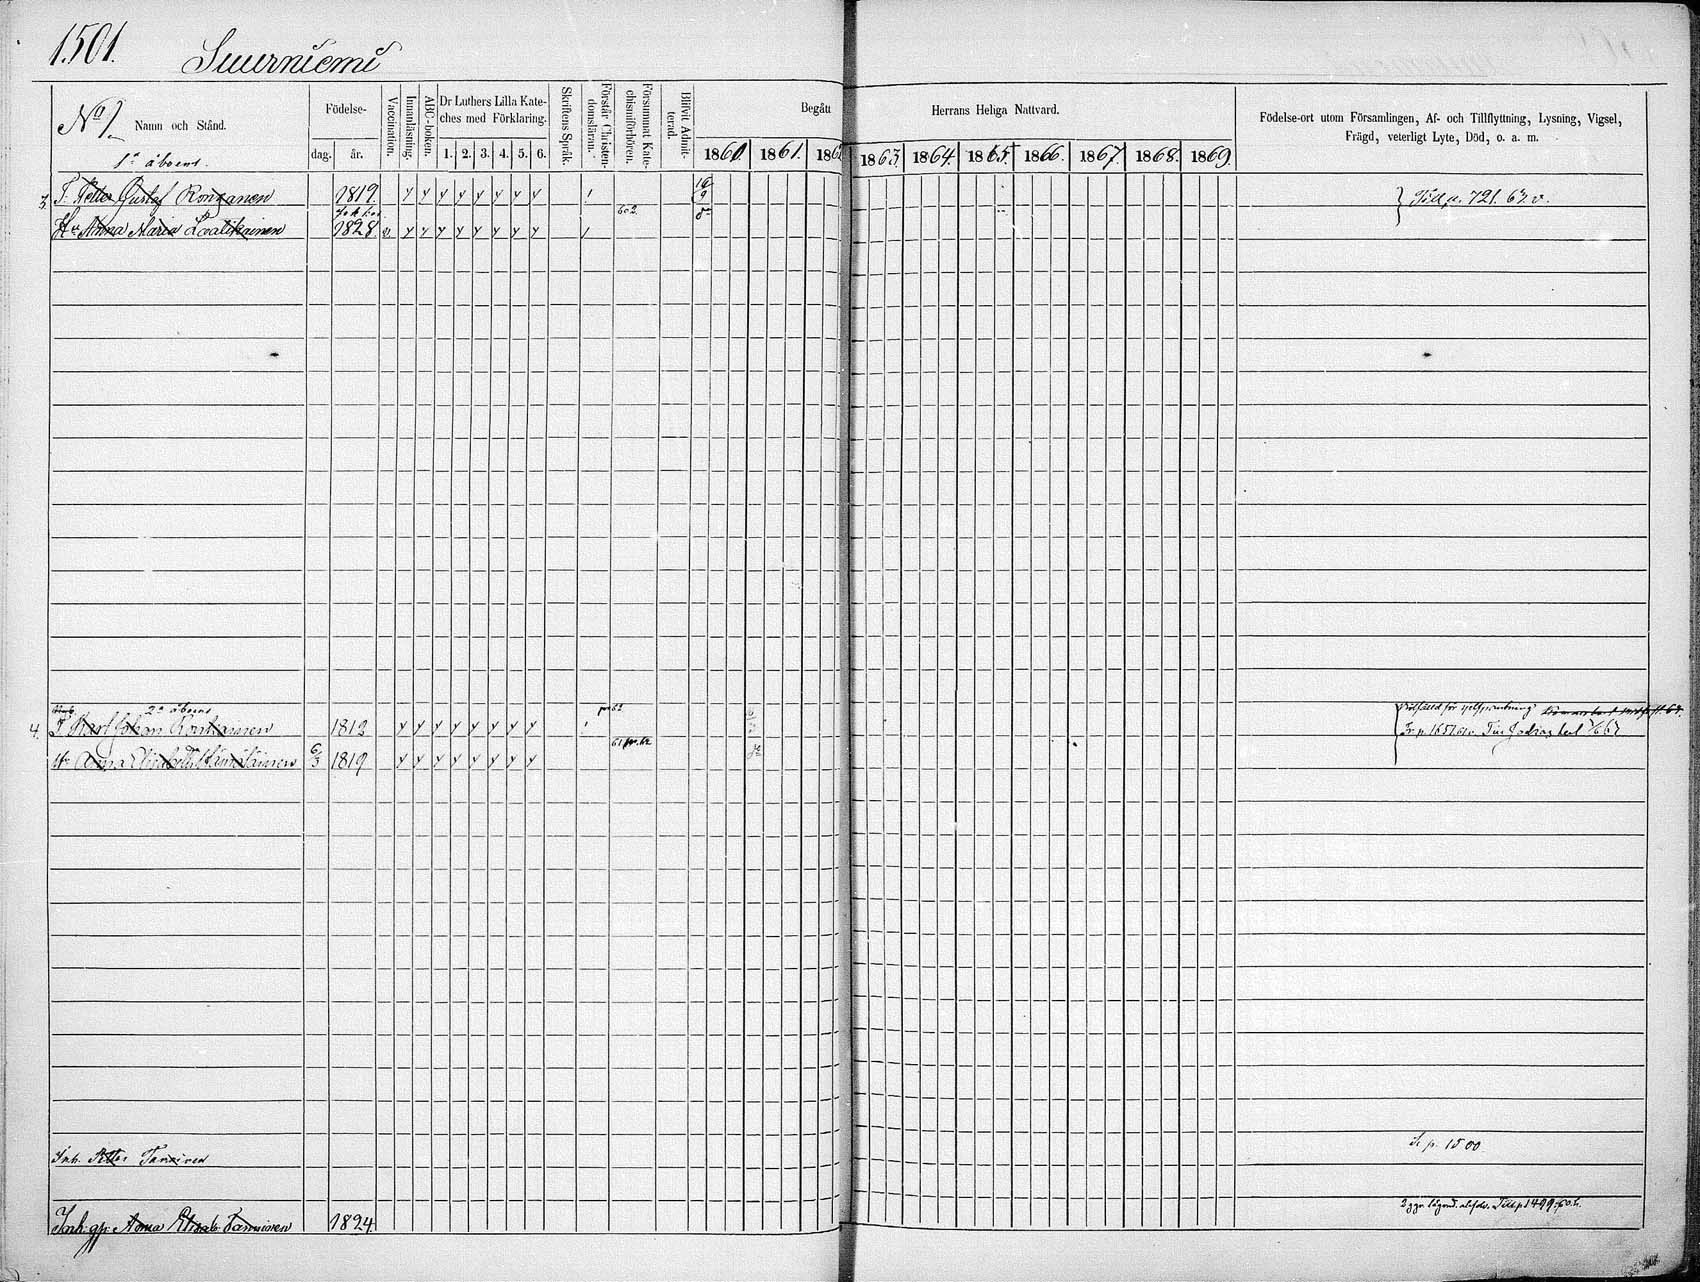 1501.
Suurniemi
No 1
Namn och Stånd.
Födelse-
dag.
år.
Vaccination.
Innanläsning.
ABC-boken.
Dr Luthers Lilla Kate-
ches med Förklaring.
1. 2. 3. 4. 5. 6.
Skriftens Språk.
Förstår Christen-
domsläran.
Försummat Kate-
chismiförhören.
Blifvit Admit-
terad.
Begått
Herrans Heliga Nattvard.
1860. 1861. 1862 1863. 1864. 1865. 1866. 1867. 1868. 1869.
Födelse-ort utom Församlingen, Af- och Tillflyttning, Lysning, Vigsel,
Frägd, veterligt Lyte, Död, o. a. m.
1a åboens.
3. T. Petter Gustaf Ronganen 1819. Till p. 721. 63.
602.
Hu Anna Maria 1828.
2a åboens
4. T. Karl Johan Ronkainen 1812
Fr. p. 1651.
Hu Anna Elisabeth 6/3 1819
Inh. Petter Tanninen
Se p. 1500
Inh. gp. Anna Elisab. Tanninen 1824.
Till p 1499.